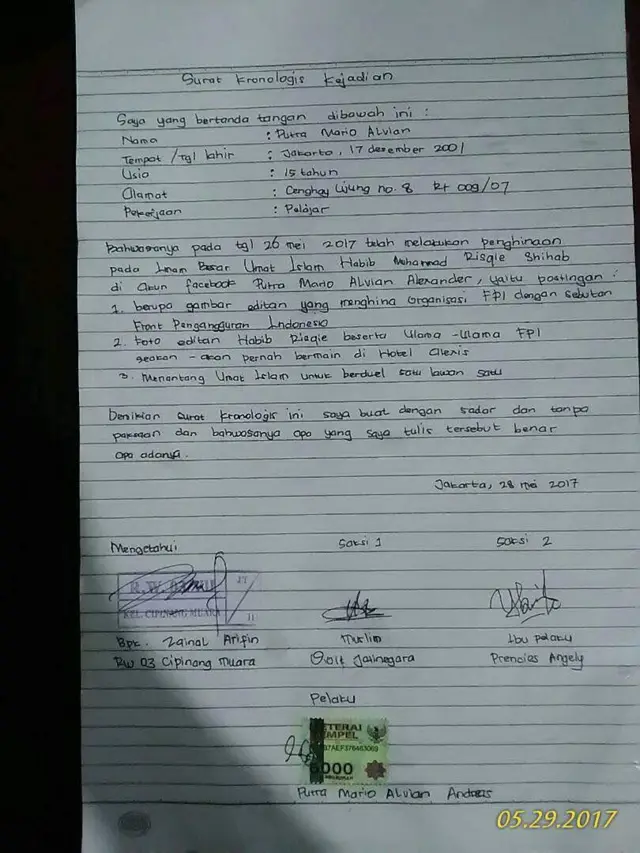 Surat Kronologis Kejadian
Saya yang bertanda tangan dibawah ini :
Nama : Putra Mario Alvian
Tempat / Tgl lahir : Jakarta, 17 desember 2001
Usia : 15 tahun
Alamat : Cenghay Ujung no. 8 Rt 009/07
Pekerjaan : Pelajar
Bahwasanya pada tgl 26 mei 2017 telah melakukan penghinaan
pada Imam Besar Umat Islam Habib Muhammad Risqie Shihab
di akun facebook Putra Mario Alvian Alexander, yaitu postingan :
1. berupa gambar editan yang menghina Organisasi FPI dengan sebutan
Front Pengangguran Indonesia
2. Foto editan Habib Risqie beserta Ulama - Ulama FPI
seakan - akan pernah bermain di Hotel Alexis
3. Menantang Umat Islam untuk berduel satu lawan satu
Demikian surat kronologis ini saya buat dengan sadar dan tanpa
paksaan dan bahwasanya apa yang saya tulis tersebut benar
apa adanya.
Jakarta, 28 mei 2017
Mengetahui Saksi 1 Saksi 2
R.W.
KEL. CIPINANG MUARA
Bpk. Zainal Aripin Muslim Ibu pelaku
Rw 03 Cipinang Muara Jatinegara Prencies Angely
Pelaku
METERAI
TEMPEL
6000
Putra Mario Alvian Andreas
05.29.2017